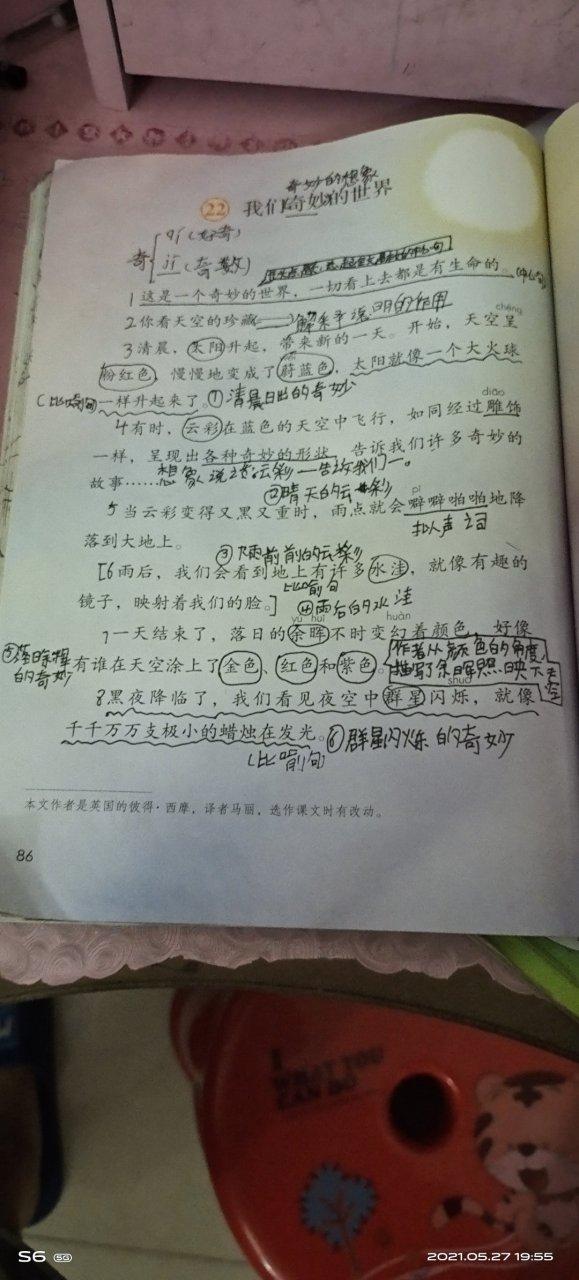 奇妙的想象
22 我们奇妙的世界
qí(好奇)
奇
jī(奇数)
1这是一个奇妙的世界,一切看上去都是有生命的。(中心句)
2你看天空的珍藏
chéng
3清晨,太阳升起,带来新的一天。开始,天空呈
粉红色,慢慢地变成了蔚蓝色,太阳就像一个大火球
(比喻句)一样升起来了。①清晨日出的奇妙
diāo
4有时,云彩在蓝色的天空中飞行,如同经过雕饰
一样,呈现出各种奇妙的形状,告诉我们许多奇妙的
故事……想象
②晴天的云彩
pī
5当云彩变得又黑又重时,雨点就会噼噼啪啪地降
落到大地上。
拟声词
[6雨后,我们会看到地上有许多水洼,就像有趣的
比喻句
镜子,映射着我们的脸。]④雨后的水洼
yú huī huàn
7一天结束了,落日的余晖不时变幻着颜色,好像
有谁在天空涂上了金色、红色和紫色。
作者从颜色的角度
描写了余晖照映天空
⑤落日余晖
的奇妙
shuò
8黑夜降临了,我们看见夜空中群星闪烁,就像
千千万万支极小的蜡烛在发光。⑥群星闪烁的奇妙
(比喻句)
本文作者是英国的彼得·西摩,译者马丽,选作课文时有改动。
86
I
WHAT YOU
CAN DO
S6 5G
2021.05.27 19:55